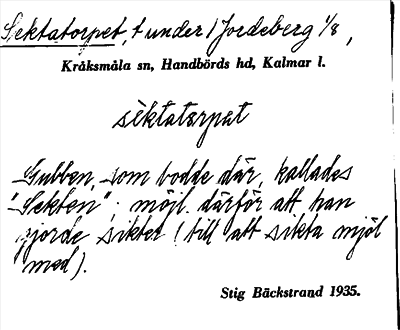 Sektatorpet, t under 1 Jordeberg 1/8,
Kråksmåla sn, Handbörds hd, Kalmar l.
sèktatorpat
Gubben, som bodde där, kallades
"Sekten"; möjl. därför att han
gjorde siktet (till att sikta mjöl
med).
Stig Bäckstrand 1935.